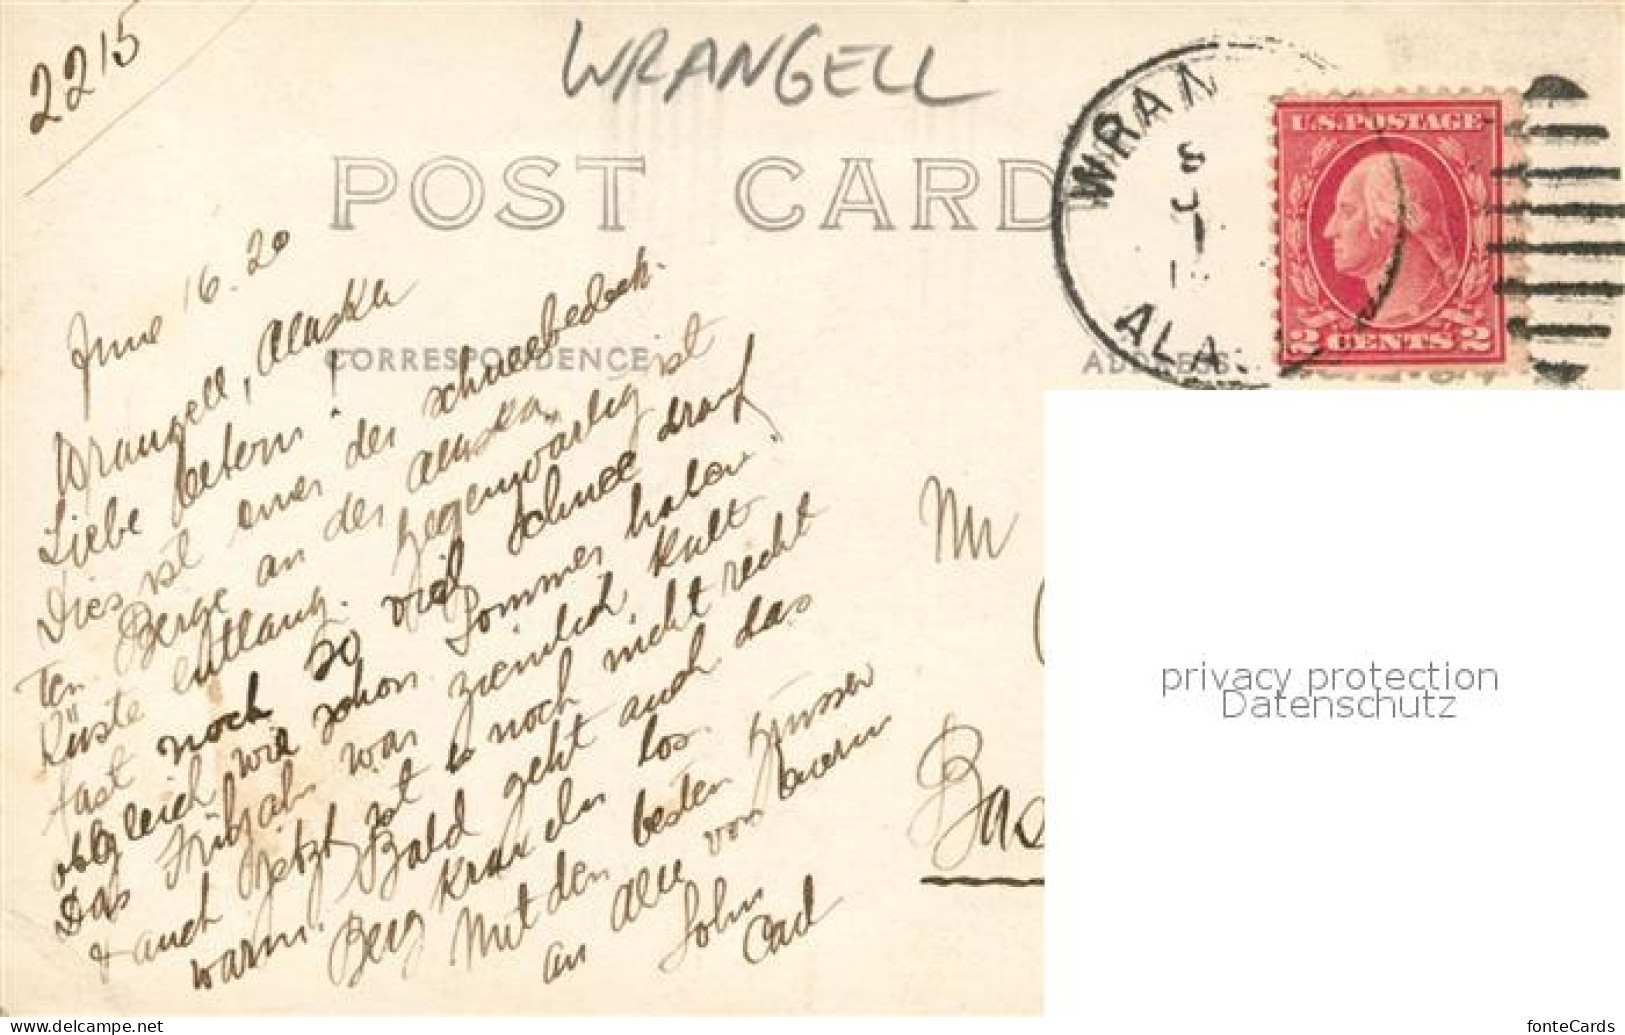 2215
WRANGELL
POST CARD
WRAN
ALA.
U.S. POSTAGE
2 CENTS 2
CORRESPONDENCE
ADDRESS
June 16. 20
Wrangell, Alaska
Liebe Eltern!
Dies ist einer der schneebedeck-
ten Berge an der Alaska
Küste entlang. Gegenwärtig ist
fast noch so viel Schnee drauf,
obgleich wie schon Sommer haben.
Das Frühjahr war ziemlich kalt
& auch jetzt ist es noch nicht recht
warm. Bald geht auch das
Berg Kraxeln los.
Mit den besten Grüssen
an Alle von Euerm
Sohn
Carl
Mr
Bas
privacy protection
Datenschutz
www.delcampe.net
fonteCards